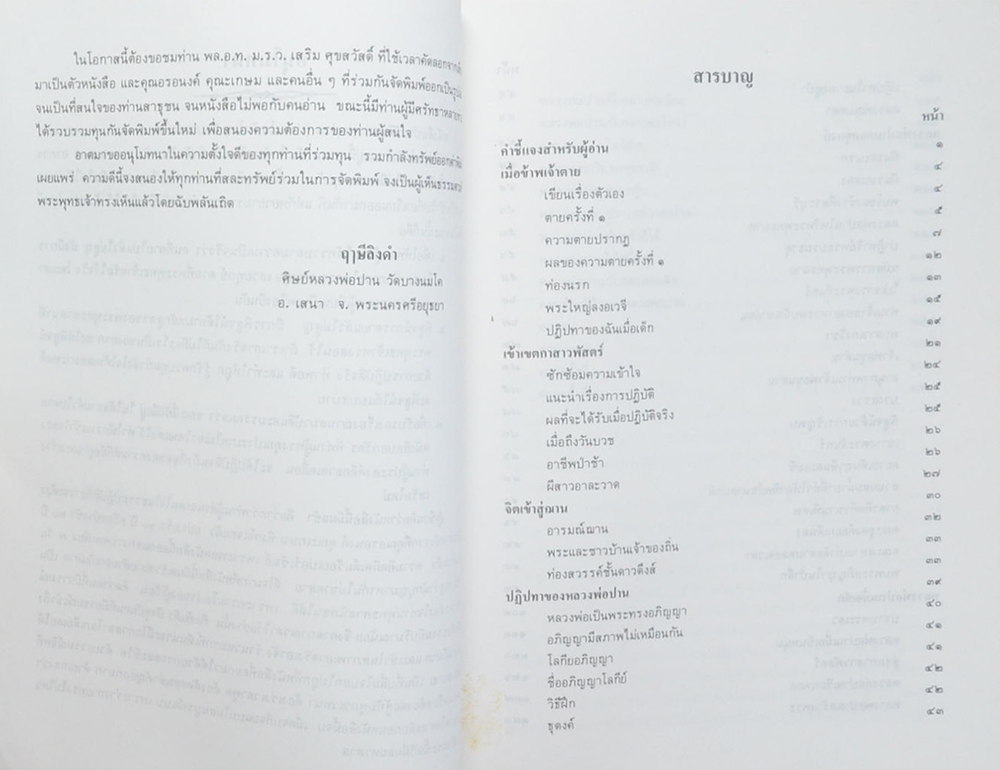 ในโอกาสนี้ต้องขอชมท่าน พล.อ.ท. ม.ร.ว. เสริม ศุขสวัสดิ์ ที่ใช้เวลาคัดลอกจาก
มาเป็นตัวหนังสือ และคุณอรอนงค์ คุณะเกษม และคนอื่น ๆ ที่ร่วมกันจัดพิมพ์ออกเป็น
จนเป็นที่สนใจของท่านสาธุชน จนหนังสือไม่พอกับคนอ่าน ขณะนี้มีท่านผู้มีศรัทธา
ได้รวบรวมทุนกันจัดพิมพ์ขึ้นใหม่ เพื่อสนองความต้องการของท่านผู้สนใจ
อาตมาขออนุโมทนาในความตั้งใจดีของทุกท่านที่ร่วมทุน รวมกำลังทรัพย์ออก
เผยแพร่ ความดีนี้จงสนองให้ทุกท่านที่สละทรัพย์ร่วมในการจัดพิมพ์ จงเป็นผู้เห็นธรรม
พระพุทธเจ้าทรงเห็นแล้วโดยฉับพลันเถิด
ฤๅษีลิงดำ
ศิษย์หลวงพ่อปาน วัดบางนมโค
อ. เสนา จ. พระนครศรีอยุธยา
สารบาญ
หน้า
คำชี้แจงสำหรับผู้อ่าน ๑
เมื่อข้าพเจ้าตาย ๔
เขียนเรื่องตัวเอง ๔
ตายครั้งที่ ๑ ๕
ความตายปรากฏ ๗
ผลของความตายครั้งที่ ๑ ๑๒
ท่องนรก ๑๓
พระใหญ่ลงอเวจี ๑๕
ปฏิปทาของฉันเมื่อเด็ก ๑๙
เข้าเขตกาสาวพัสตร์ ๒๑
ซักซ้อมความเข้าใจ ๒๔
แนะนำเรื่องการปฏิบัติ ๒๕
ผลที่จะได้รับเมื่อปฏิบัติจริง ๒๕
เมื่อถึงวันบวช ๒๖
อาชีพป่าช้า ๒๖
ผีสาวอาละวาด ๒๗
จิตเข้าสู่ฌาน ๓๐
อารมณ์ฌาน ๓๒
พระและชาวบ้านเจ้าของถิ่น ๓๓
ท่องสวรรค์ชั้นดาวดึงส์ ๓๓
ปฏิปทาของหลวงพ่อปาน ๓๙
หลวงพ่อเป็นพระทรงอภิญญา ๔๐
อภิญญามีสภาพไม่เหมือนกัน ๔๑
โลกียอภิญญา ๔๑
ชื่ออภิญญาโลกีย์ ๔๒
วิธีฝึก ๔๒
ธุดงค์ ๔๓